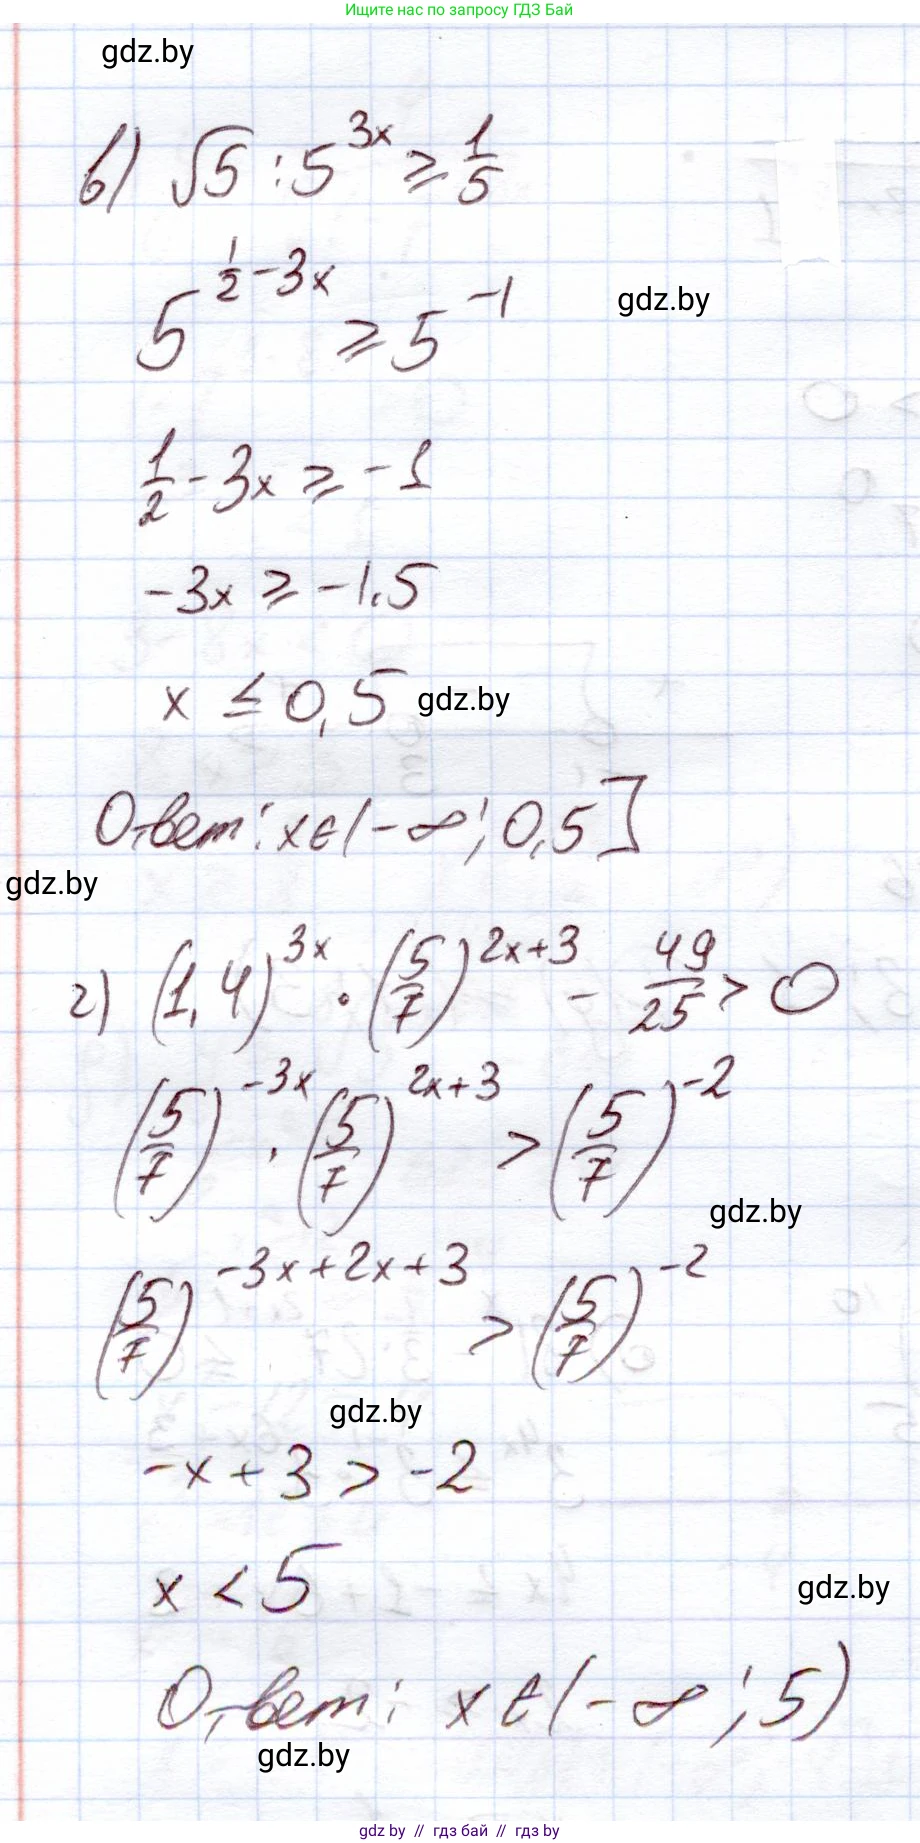 Ищите нас по запросу ГДЗ Бай
gdz.by
в) √5 : 5^{3x} ≥ 1/5
5^{1/2 - 3x} ≥ 5^{-1}
gdz.by
1/2 - 3x ≥ -1
-3x ≥ -1.5
x ≤ 0,5
gdz.by
Ответ: x ∈ (-∞; 0,5]
gdz.by
г) (1,4)^{3x} · (5/7)^{2x+3} - 49/25 > 0
(5/7)^{-3x} · (5/7)^{2x+3} > (5/7)^{-2}
gdz.by
(5/7)^{-3x+2x+3} > (5/7)^{-2}
gdz.by
-x + 3 > -2
x < 5
gdz.by
Ответ: x ∈ (-∞; 5)
gdz.by
gdz by // гдз бай // gdz by